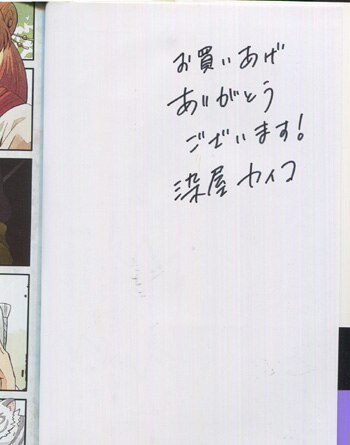 お買いあげ
ありがとう
ございます!
染屋カイコ